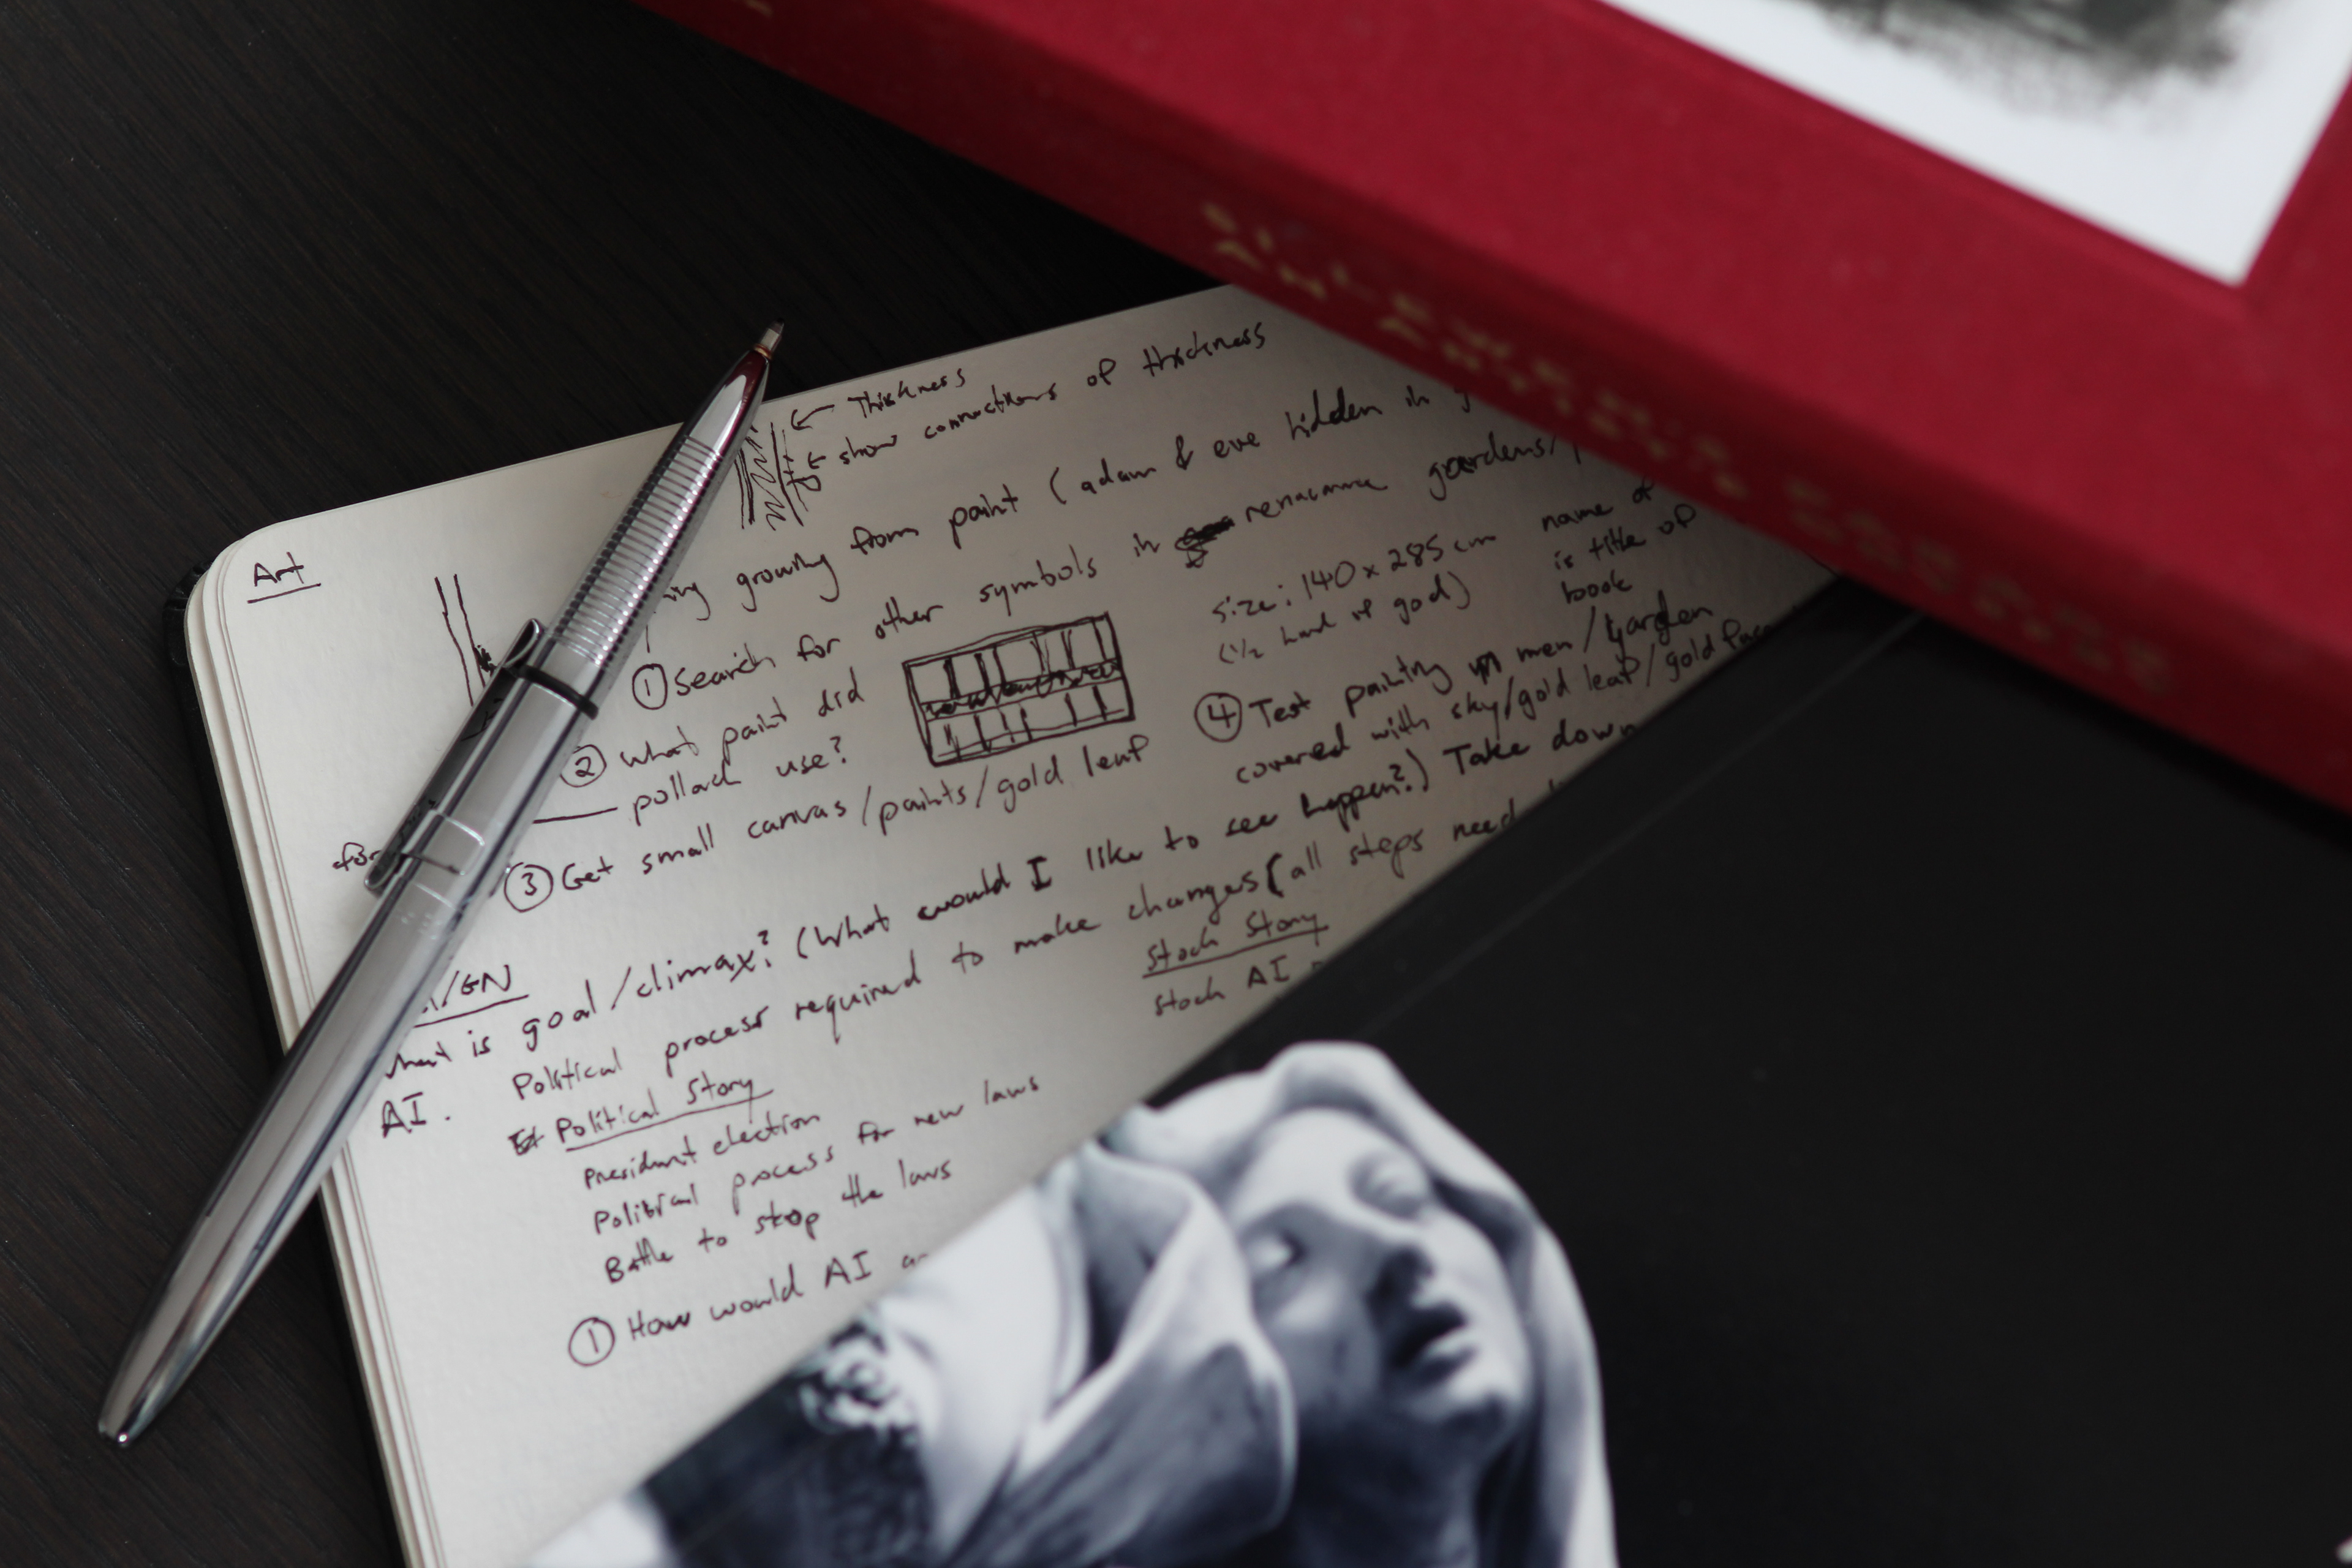 Art
← Thickness
← show connections of thickness
growing from paint (adam & eve hidden in
① Search for other symbols in renacannce gardens/
② what paint did
pollack use?
size: 140 x 285 cm
(1/2 hand of god)
name of
is title of
book
for
③ Get small canvas/paints/gold leaf
④ Test painting men/garden
covered with sky/gold leaf/gold
/GN
is goal/climax? (What would I like to see happen?) Take down
AI. Political process required to make changes (all steps need
Political Story
President election
Political process for new laws
Battle to stop the laws
① How would AI
Stock Story
Stock AI